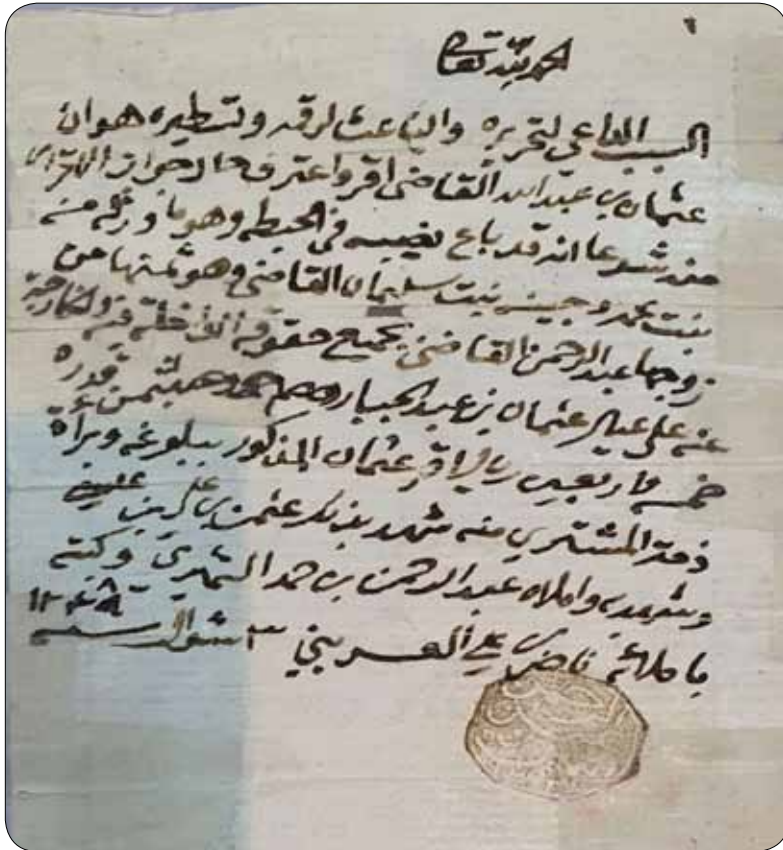 الحمد لله تعالى
السبب الداعي لتحريره والباعث لرقمه وتسطيره هو ان
عثمان بن عبد الله القاضي اقر واعترف حال جواز الاقرار
منه شرعا انه قد باع نصيبه في الحيطه وهو ما ورثه من
بنت محمد بنت سليمان القاضي وهو ثمنها من
زوجها عبد الرحمن القاضي بجميع حقوقه الداخلة فيه والخارجة
عنه على عيال عثمان بن عبد الجبار بثمن قدره
خمسه واربعين ريال اقر عثمان المذكور ببلوغه وبراة
ذمة المشتري منه شهد بذلك عثمن بن علي بن
وشهد به واملاه عبد الرحمن بن حمد الشمري وكتبه
باملائه ناصر بن علي العريني ٣ شوال سنه ١٢٤٨